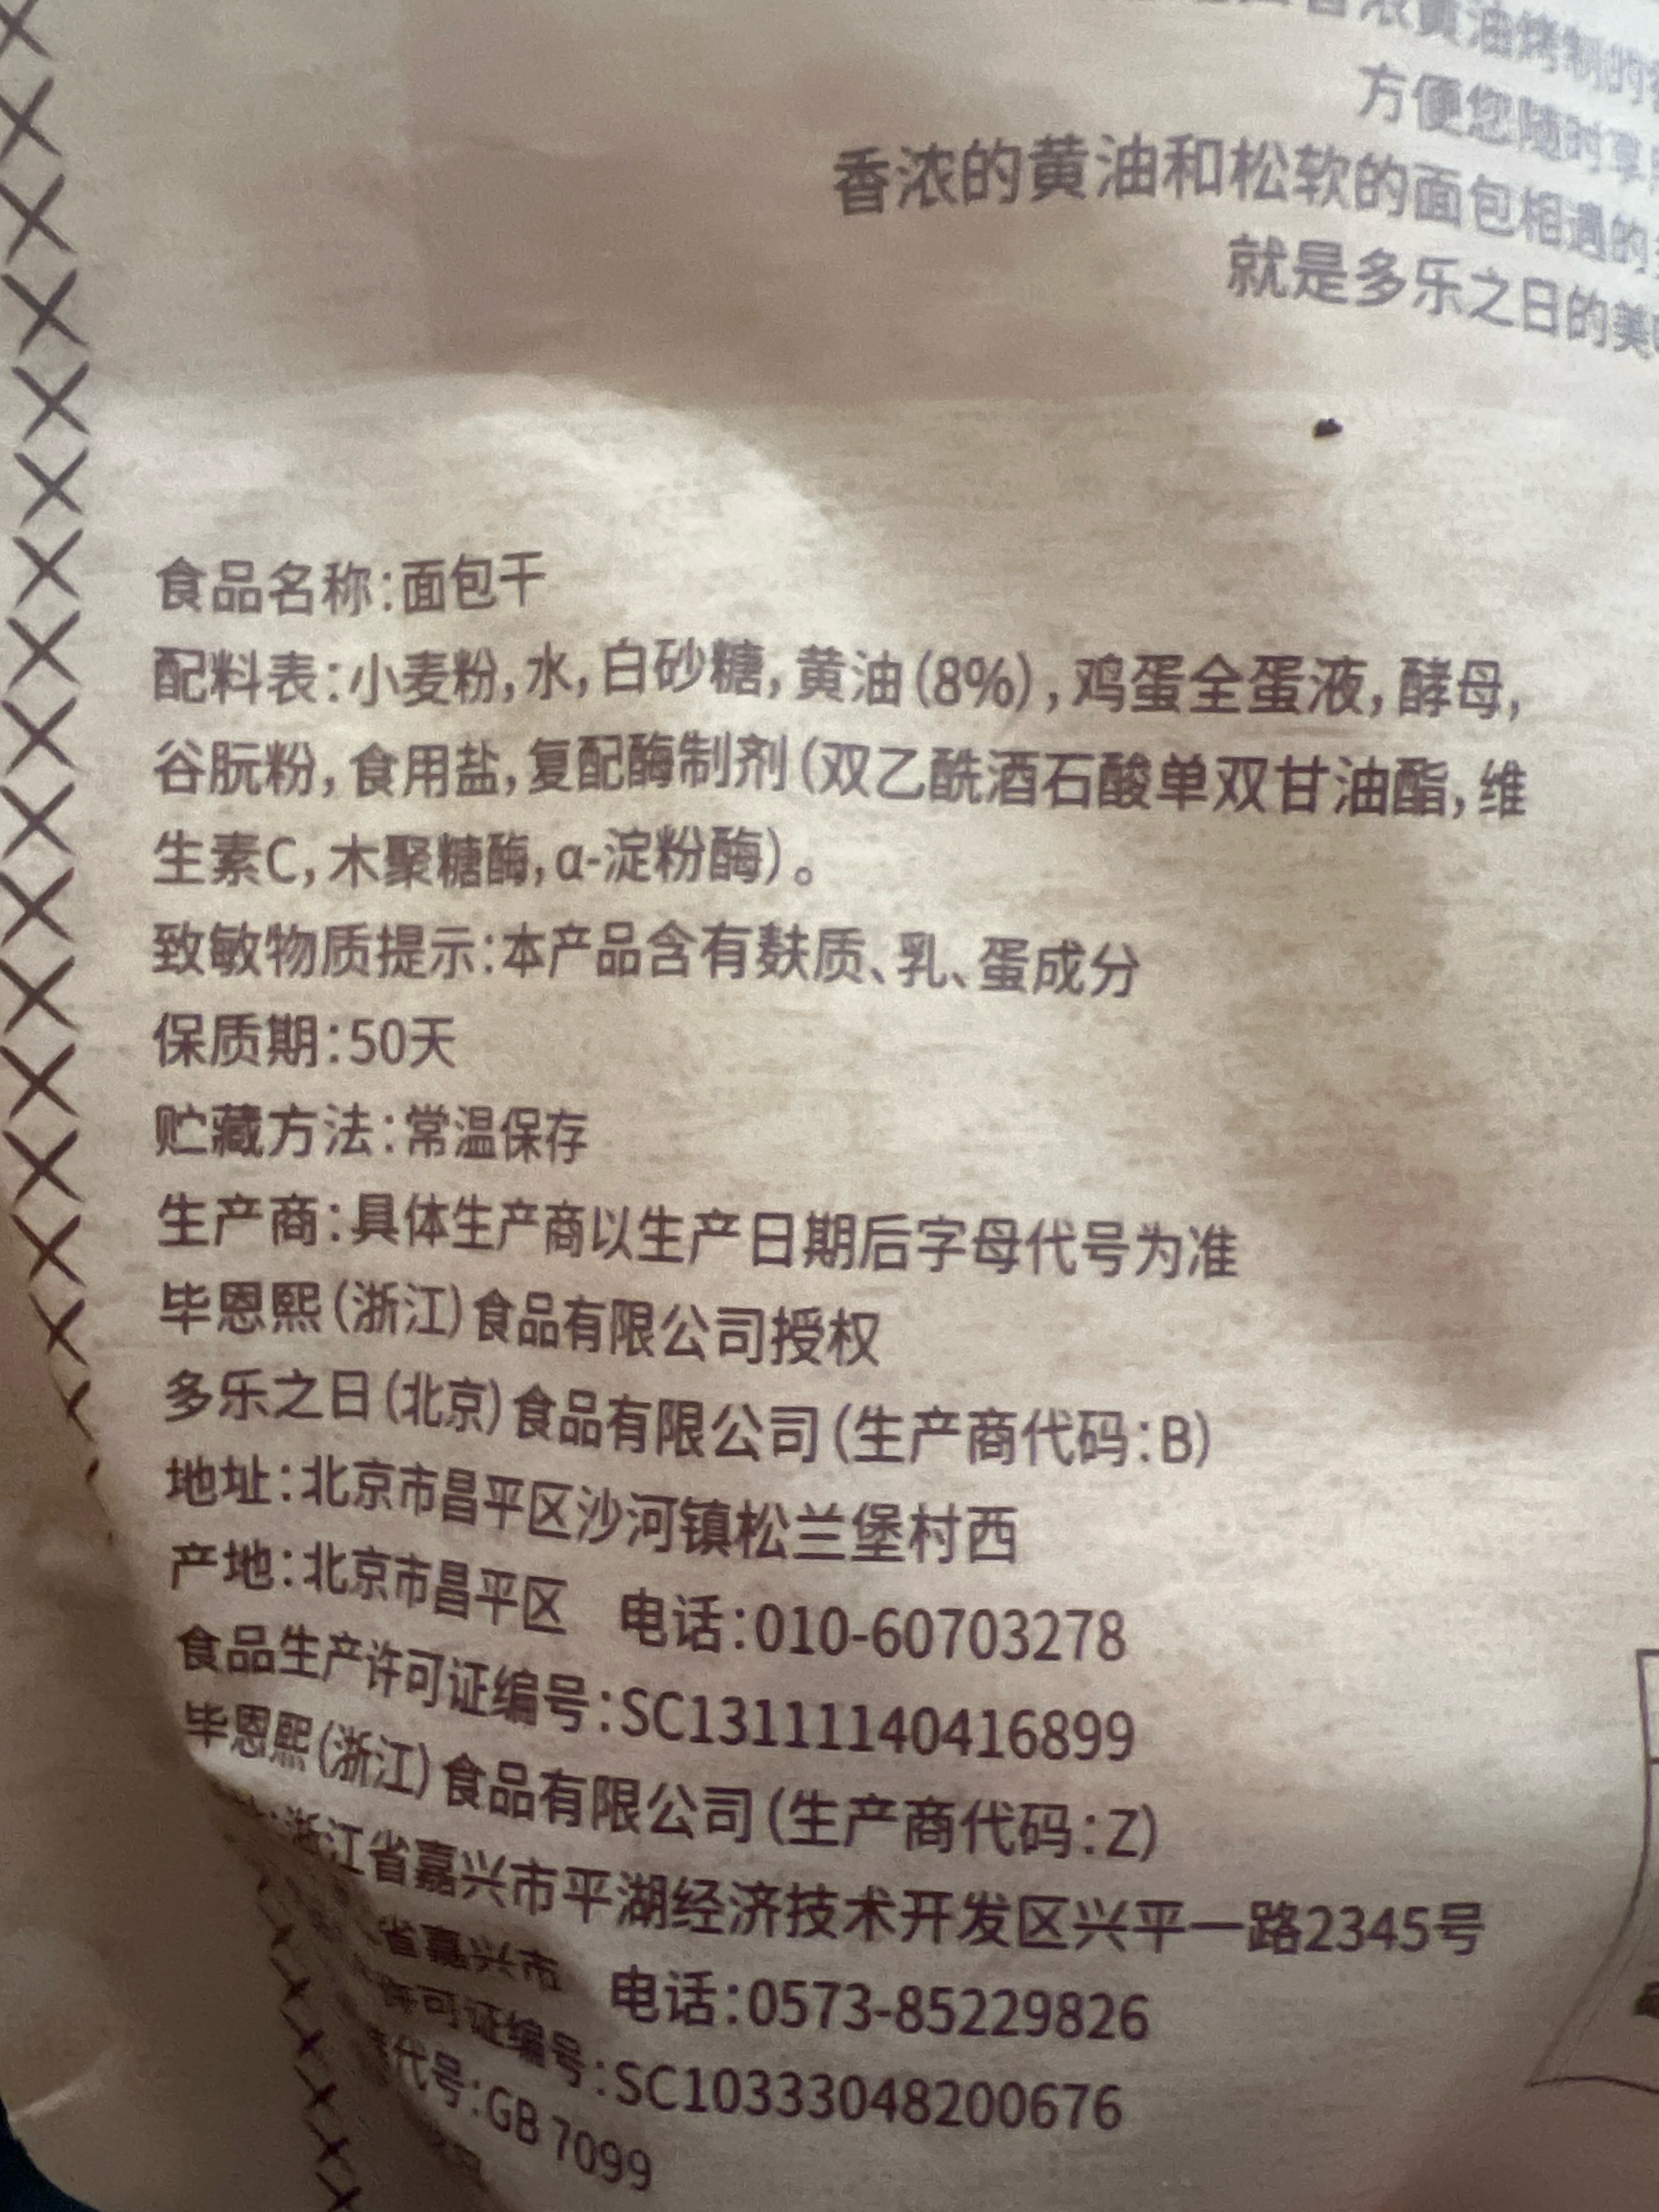 香浓黄油烤制的
方便您随时享
香浓的黄油和松软的面包相遇的
就是多乐之日的美
食品名称:面包干
配料表:小麦粉,水,白砂糖,黄油(8%),鸡蛋全蛋液,酵母,
谷朊粉,食用盐,复配酶制剂(双乙酰酒石酸单双甘油酯,维
生素C,木聚糖酶,α-淀粉酶)。
致敏物质提示:本产品含有麸质、乳、蛋成分
保质期:50天
贮藏方法:常温保存
生产商:具体生产商以生产日期后字母代号为准
毕恩熙(浙江)食品有限公司授权
多乐之日(北京)食品有限公司(生产商代码:B)
地址:北京市昌平区沙河镇松兰堡村西
产地:北京市昌平区 电话:010-60703278
食品生产许可证编号:SC13111140416899
毕恩熙(浙江)食品有限公司(生产商代码:Z)
浙江省嘉兴市平湖经济技术开发区兴平一路2345号
省嘉兴市 电话:0573-85229826
许可证编号:SC10333048200676
代号:GB 7099